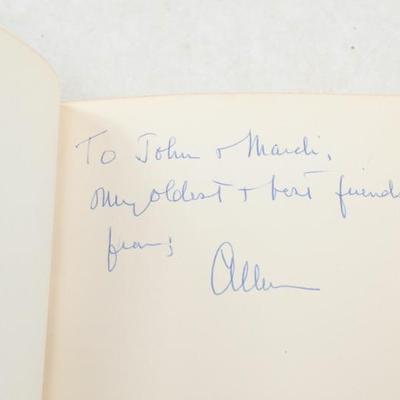 To John + Mardi,
my oldest + best friends
from;
Allen